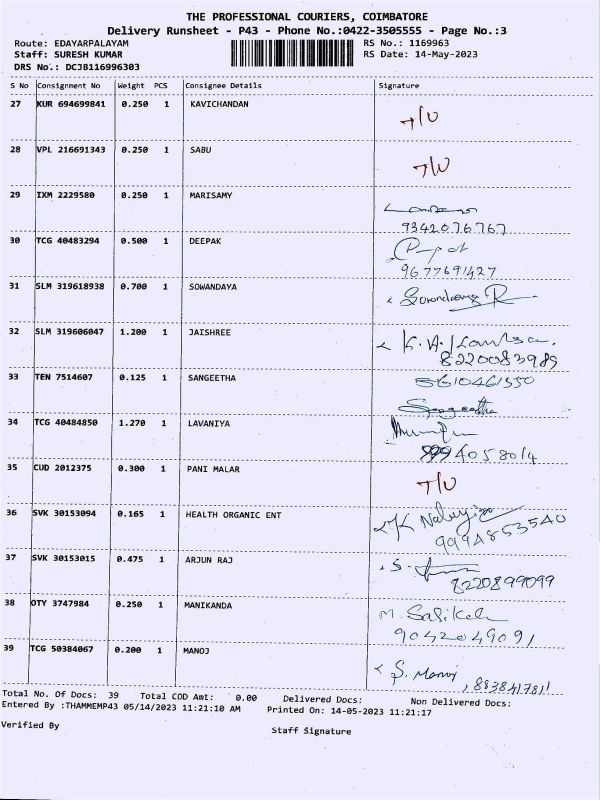 THE PROFESSIONAL COURIERS, COIMBATORE
Delivery Runsheet - P43 - Phone No.:0422-3505555 - Page No.:3
Route: EDAYARPALAYAM RS No.: 1169963
Staff: SURESH KUMAR RS Date: 14-May-2023
DRS No.: DCJB116996303
S No Consignment No Weight PCS Consignee Details Signature
27 KUR 694699841 0.250 1 KAVICHANDAN
28 VPL 216691343 0.250 1 SABU
29 IXM 2229580 0.250 1 MARISAMY
9342076767
30 TCG 40483294 0.500 1 DEEPAK
9677691427
31 SLM 319618938 0.700 1 SOWANDAYA
32 SLM 319606047 1.200 1 JAISHREE
8220083989
33 TEN 7514607 0.125 1 SANGEETHA
Sangeetha
34 TCG 40484850 1.270 1 LAVANIYA
9994058014
35 CUD 2012375 0.300 1 PANI MALAR
36 SVK 30153094 0.165 1 HEALTH ORGANIC ENT
9994853540
37 SVK 30153015 0.475 1 ARJUN RAJ
8220899099
38 OTY 3747984 0.250 1 MANIKANDA
9042049091
39 TCG 50384067 0.200 1 MANOJ
S. Manoj
Total No. Of Docs: 39 Total COD Amt: 0.00 Delivered Docs: Non Delivered Docs:
Entered By :THAMMEMP43 05/14/2023 11:21:10 AM Printed On: 14-05-2023 11:21:17
Verified By Staff Signature